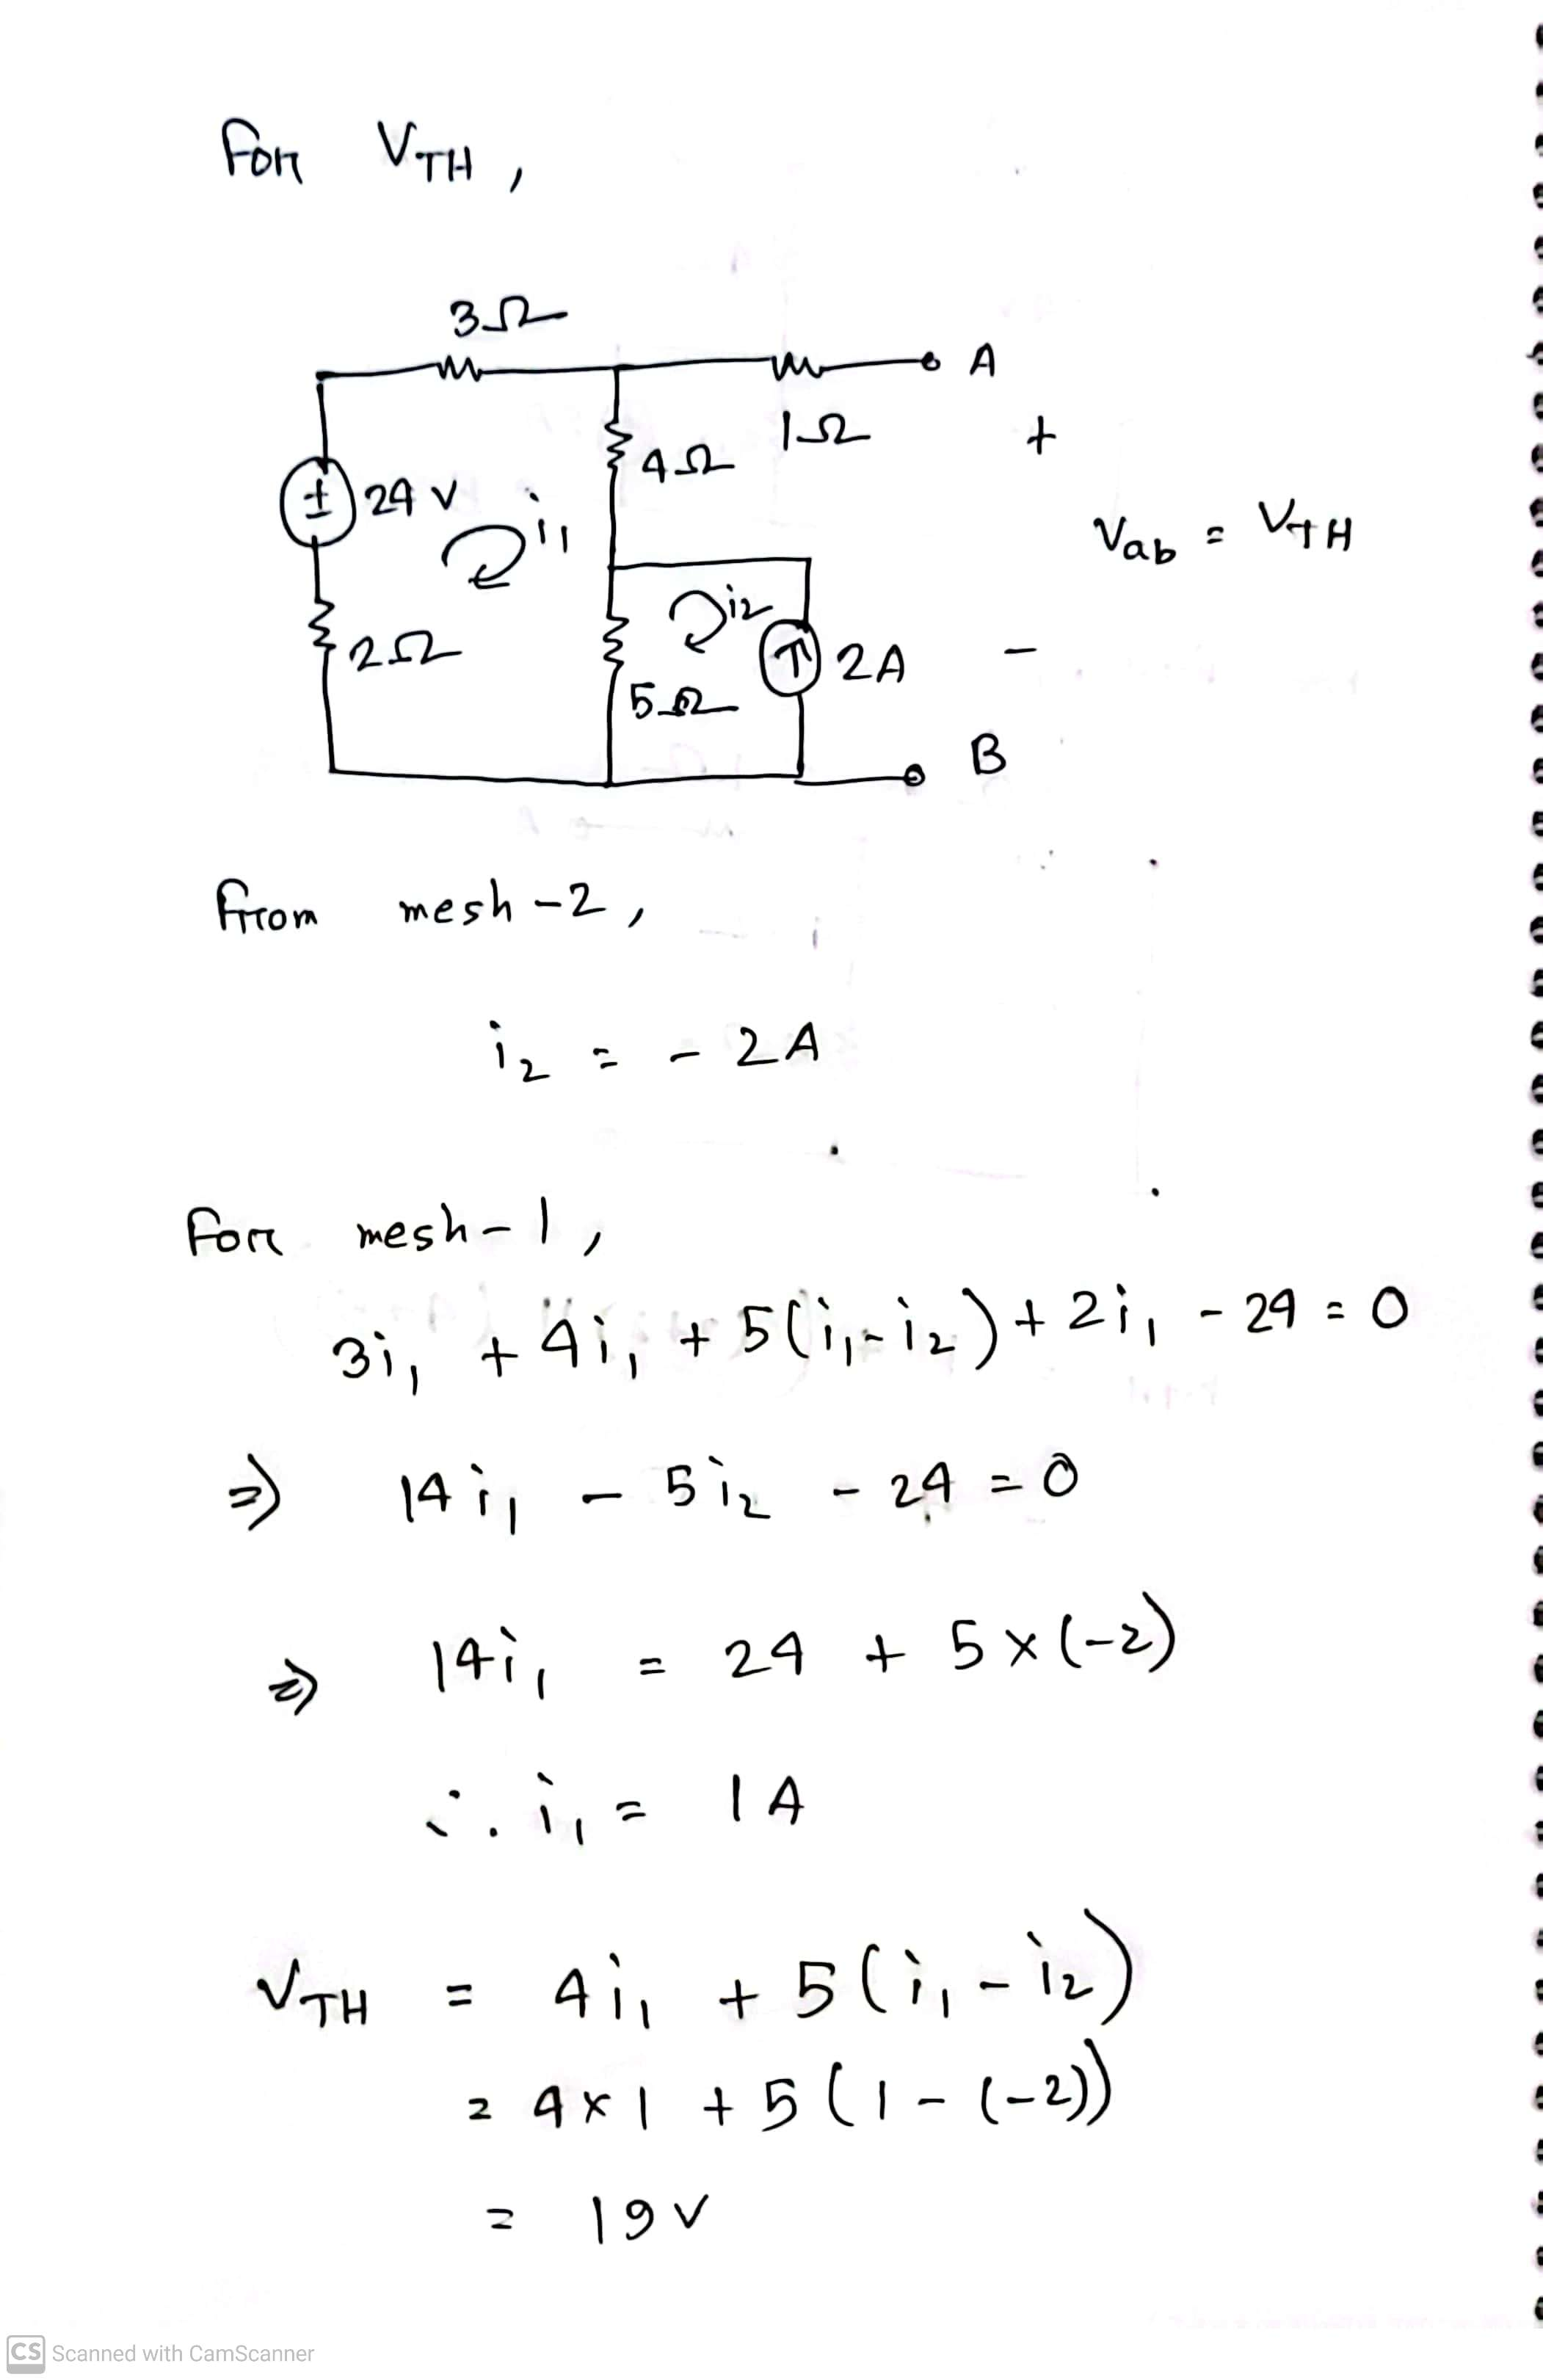 For VTH,
3Ω
A
1Ω
+
4Ω
± 24 V
i1
Vab = VTH
i2
2Ω
↑ 2A
-
5Ω
B
From mesh-2,
i2 = - 2A
For mesh-1,
3i1 + 4i1 + 5(i1-i2) + 2i1 - 24 = 0
⇒ 14i1 - 5i2 - 24 = 0
⇒ 14i1 = 24 + 5×(-2)
∴ i1 = 1A
VTH = 4i1 + 5(i1 - i2)
= 4×1 + 5(1 - (-2))
= 19V
CS Scanned with CamScanner